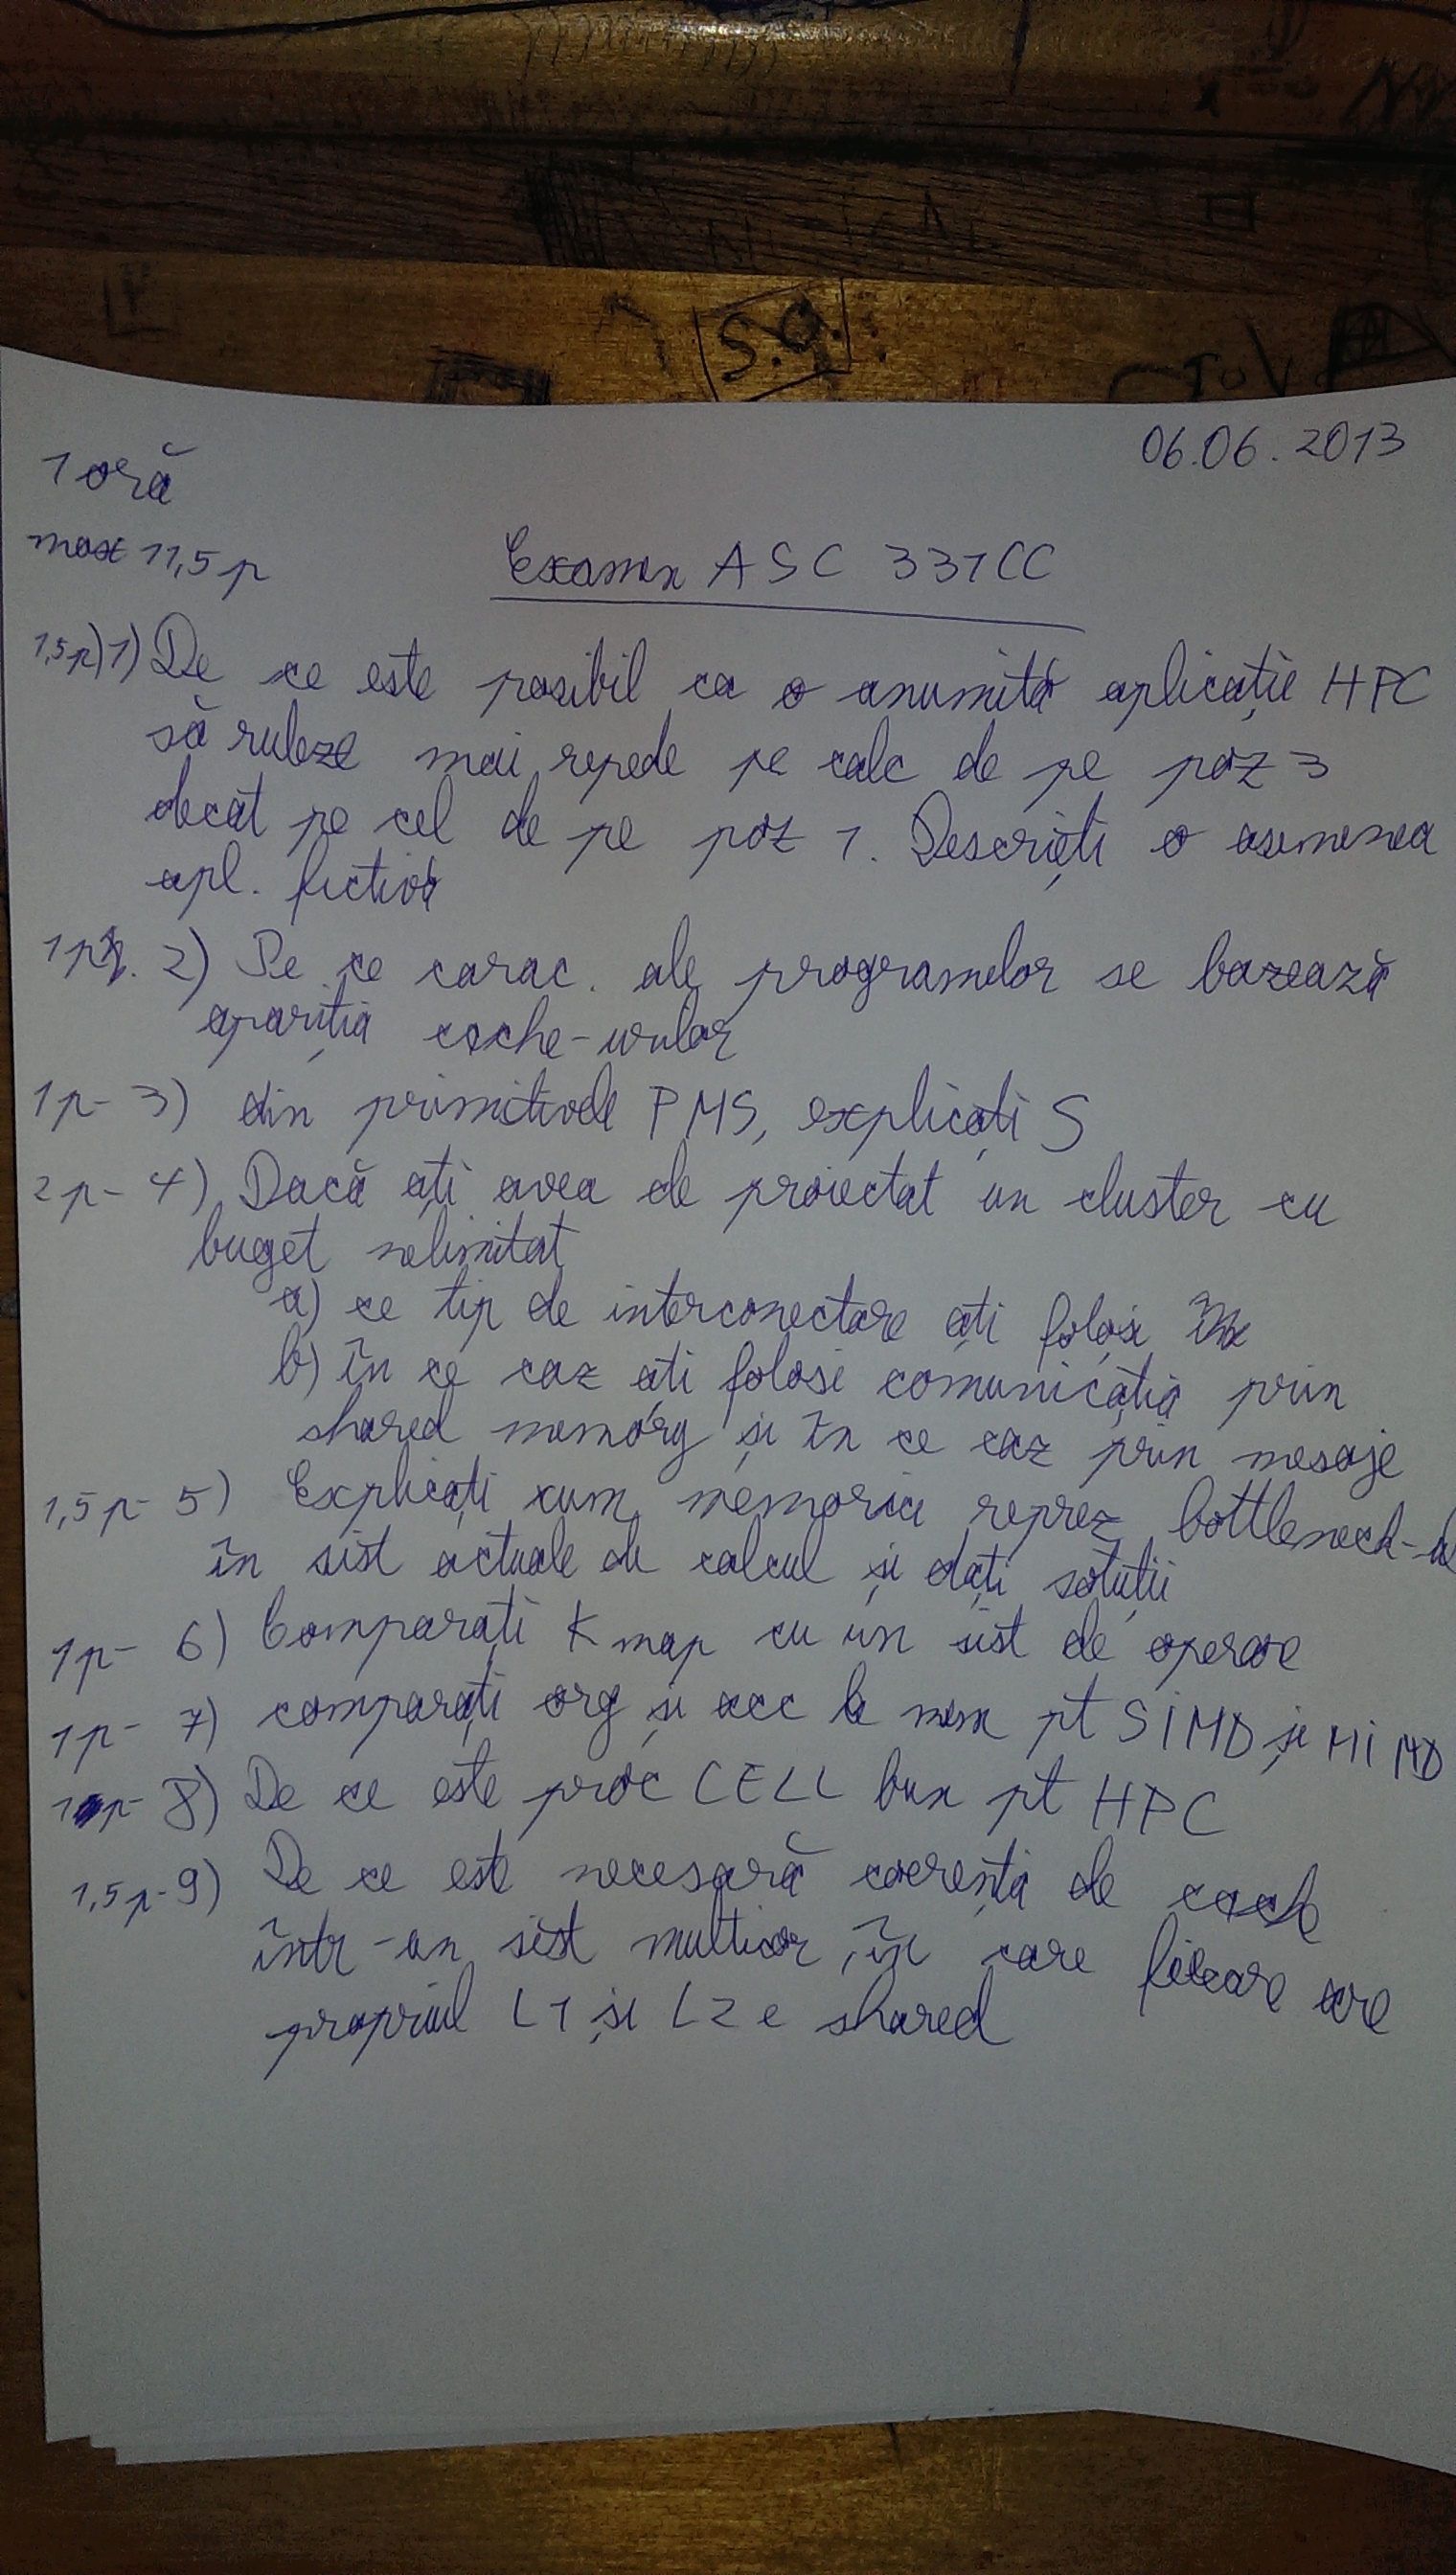 S.O.
06.06.2013
1 oră
max 11,5 p
Examen ASC 331CC
1,5p) 1) De ce este posibil ca o anumită aplicație HPC
să ruleze mai repede pe calc de pe poz 3
decât pe cel de pe poz 1. Descrieți o asemenea
apl. fictivă
1p. 2) Pe ce carac. ale programelor se bazează
apariția cache-urilor
1p- 3) din primitivele PMS, explicați S
2p- 4) Dacă ați avea de proiectat un cluster cu
buget nelimitat
a) ce tip de interconectare ați folosi
b) în ce caz ați folosi comunicația prin
shared memory și în ce caz prin mesaje
1,5p- 5) Explicați cum memoria reprez bottleneck-ul
în sist actuale de calcul și dați soluții
1p- 6) Comparați K map cu un sist de operare
1p- 7) comparați org și acc la mem pt SIMD și MIMD
1p- 8) De ce este proc CELL bun pt HPC
1,5p- 9) De ce este necesară coerența de cache
într-un sist multicor, în care fiecare are
propriul L1 și L2 e shared